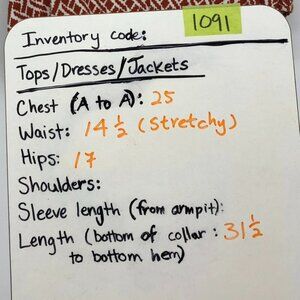 1091
Inventory code:
Tops/Dresses/Jackets
Chest (A to A): 25
Waist: 14 1/2 (stretchy)
Hips: 17
Shoulders:
Sleeve length (from armpit):
Length (bottom of collar : 31 1/2
to bottom hem)